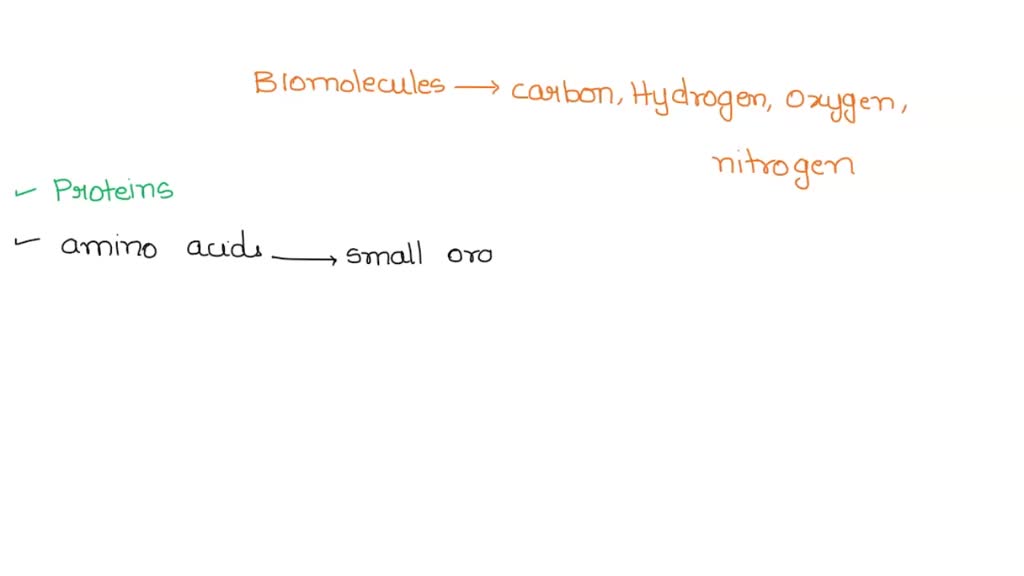 Biomolecules → carbon, Hydrogen, Oxygen,
nitrogen
✓ Proteins
✓ amino acids → small oro